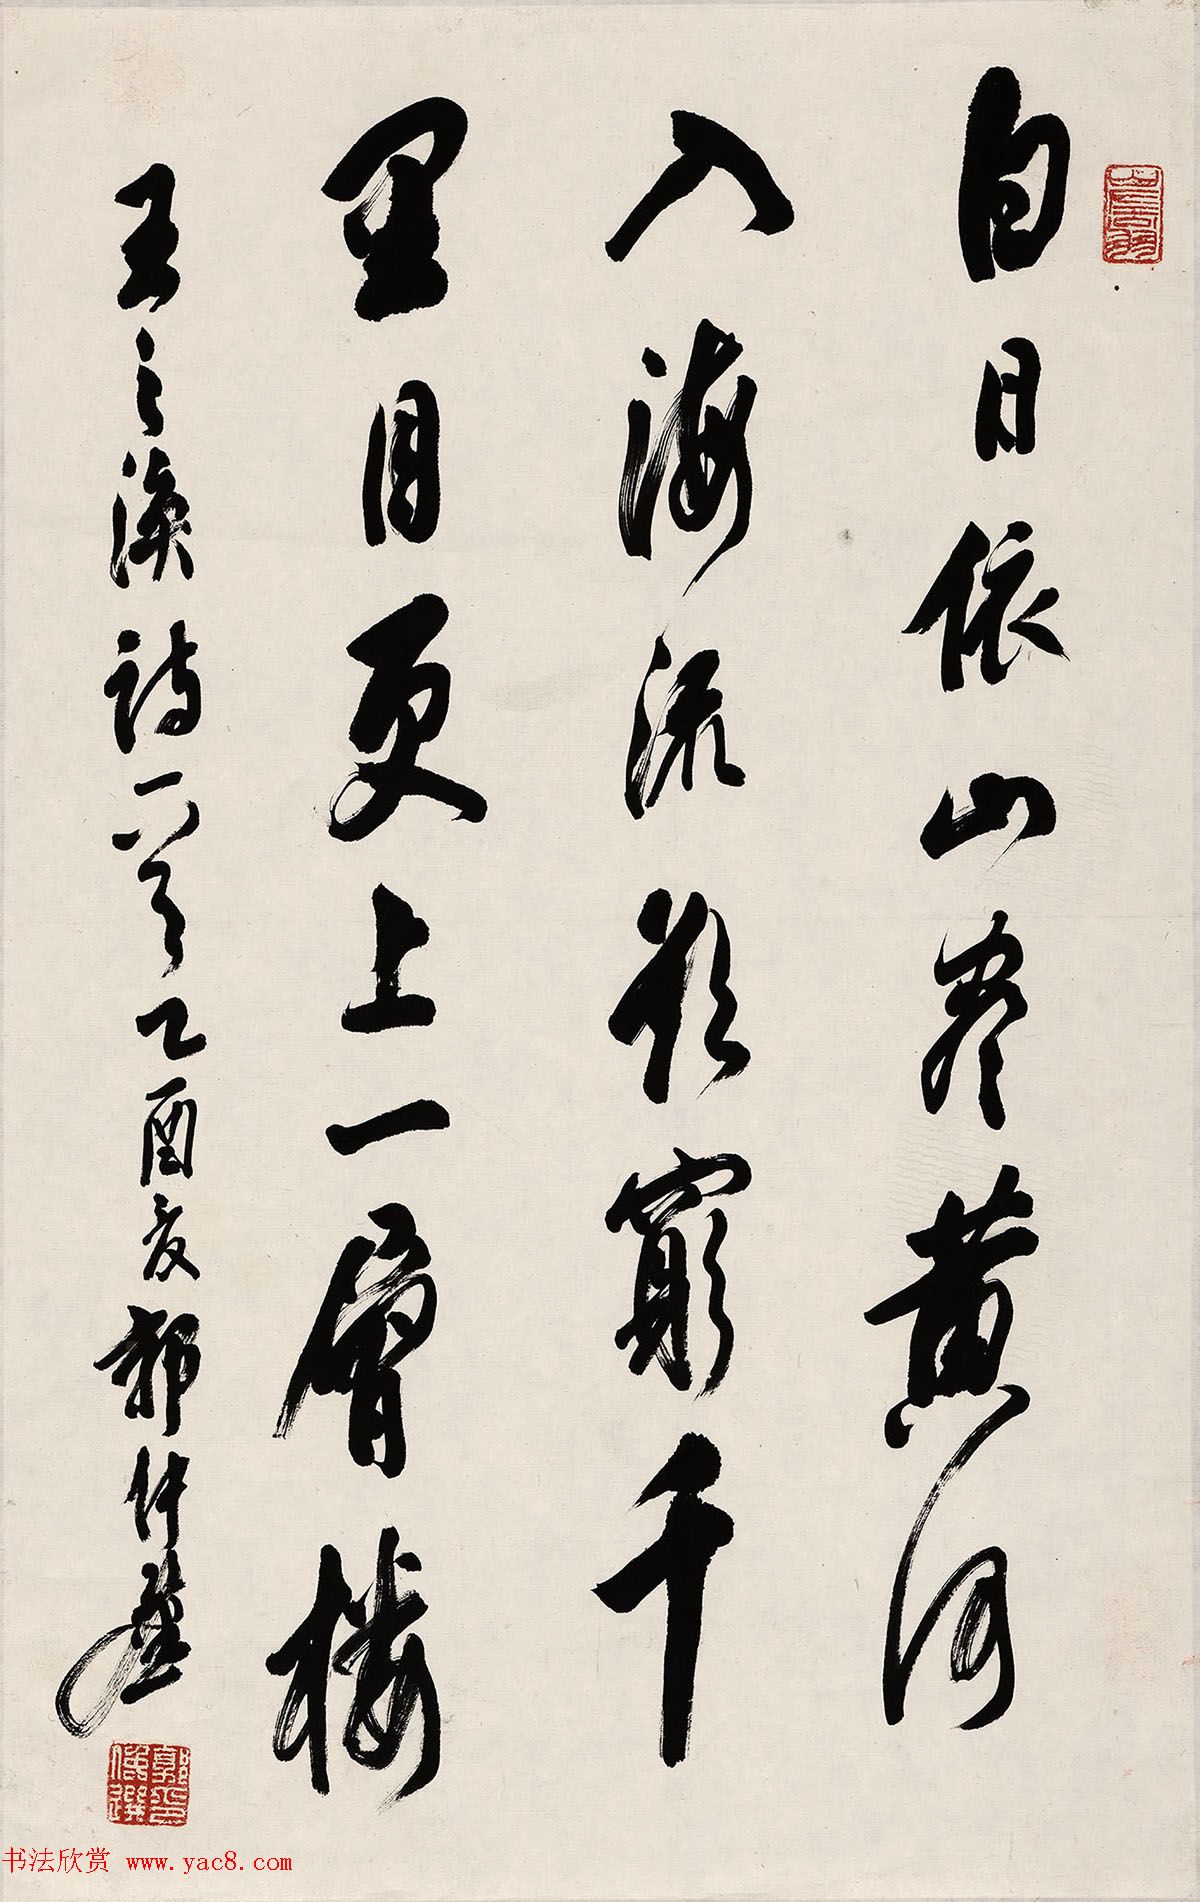 白日依山尽黄河
入海流欲窮千
里目更上一層楼
王之渙詩一首乙酉夏郭仲選
書法欣赏 www.yac8.com